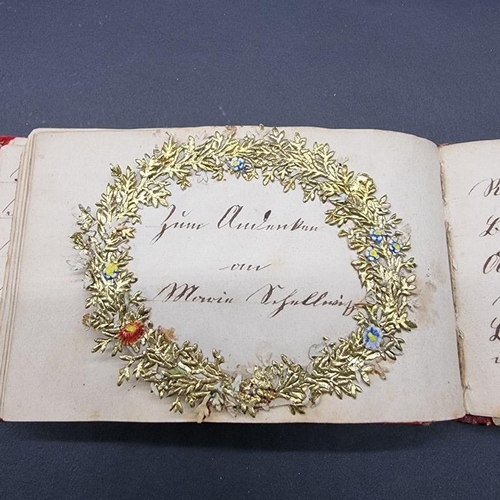 Zum Andenken
an
Marie Schellwitz